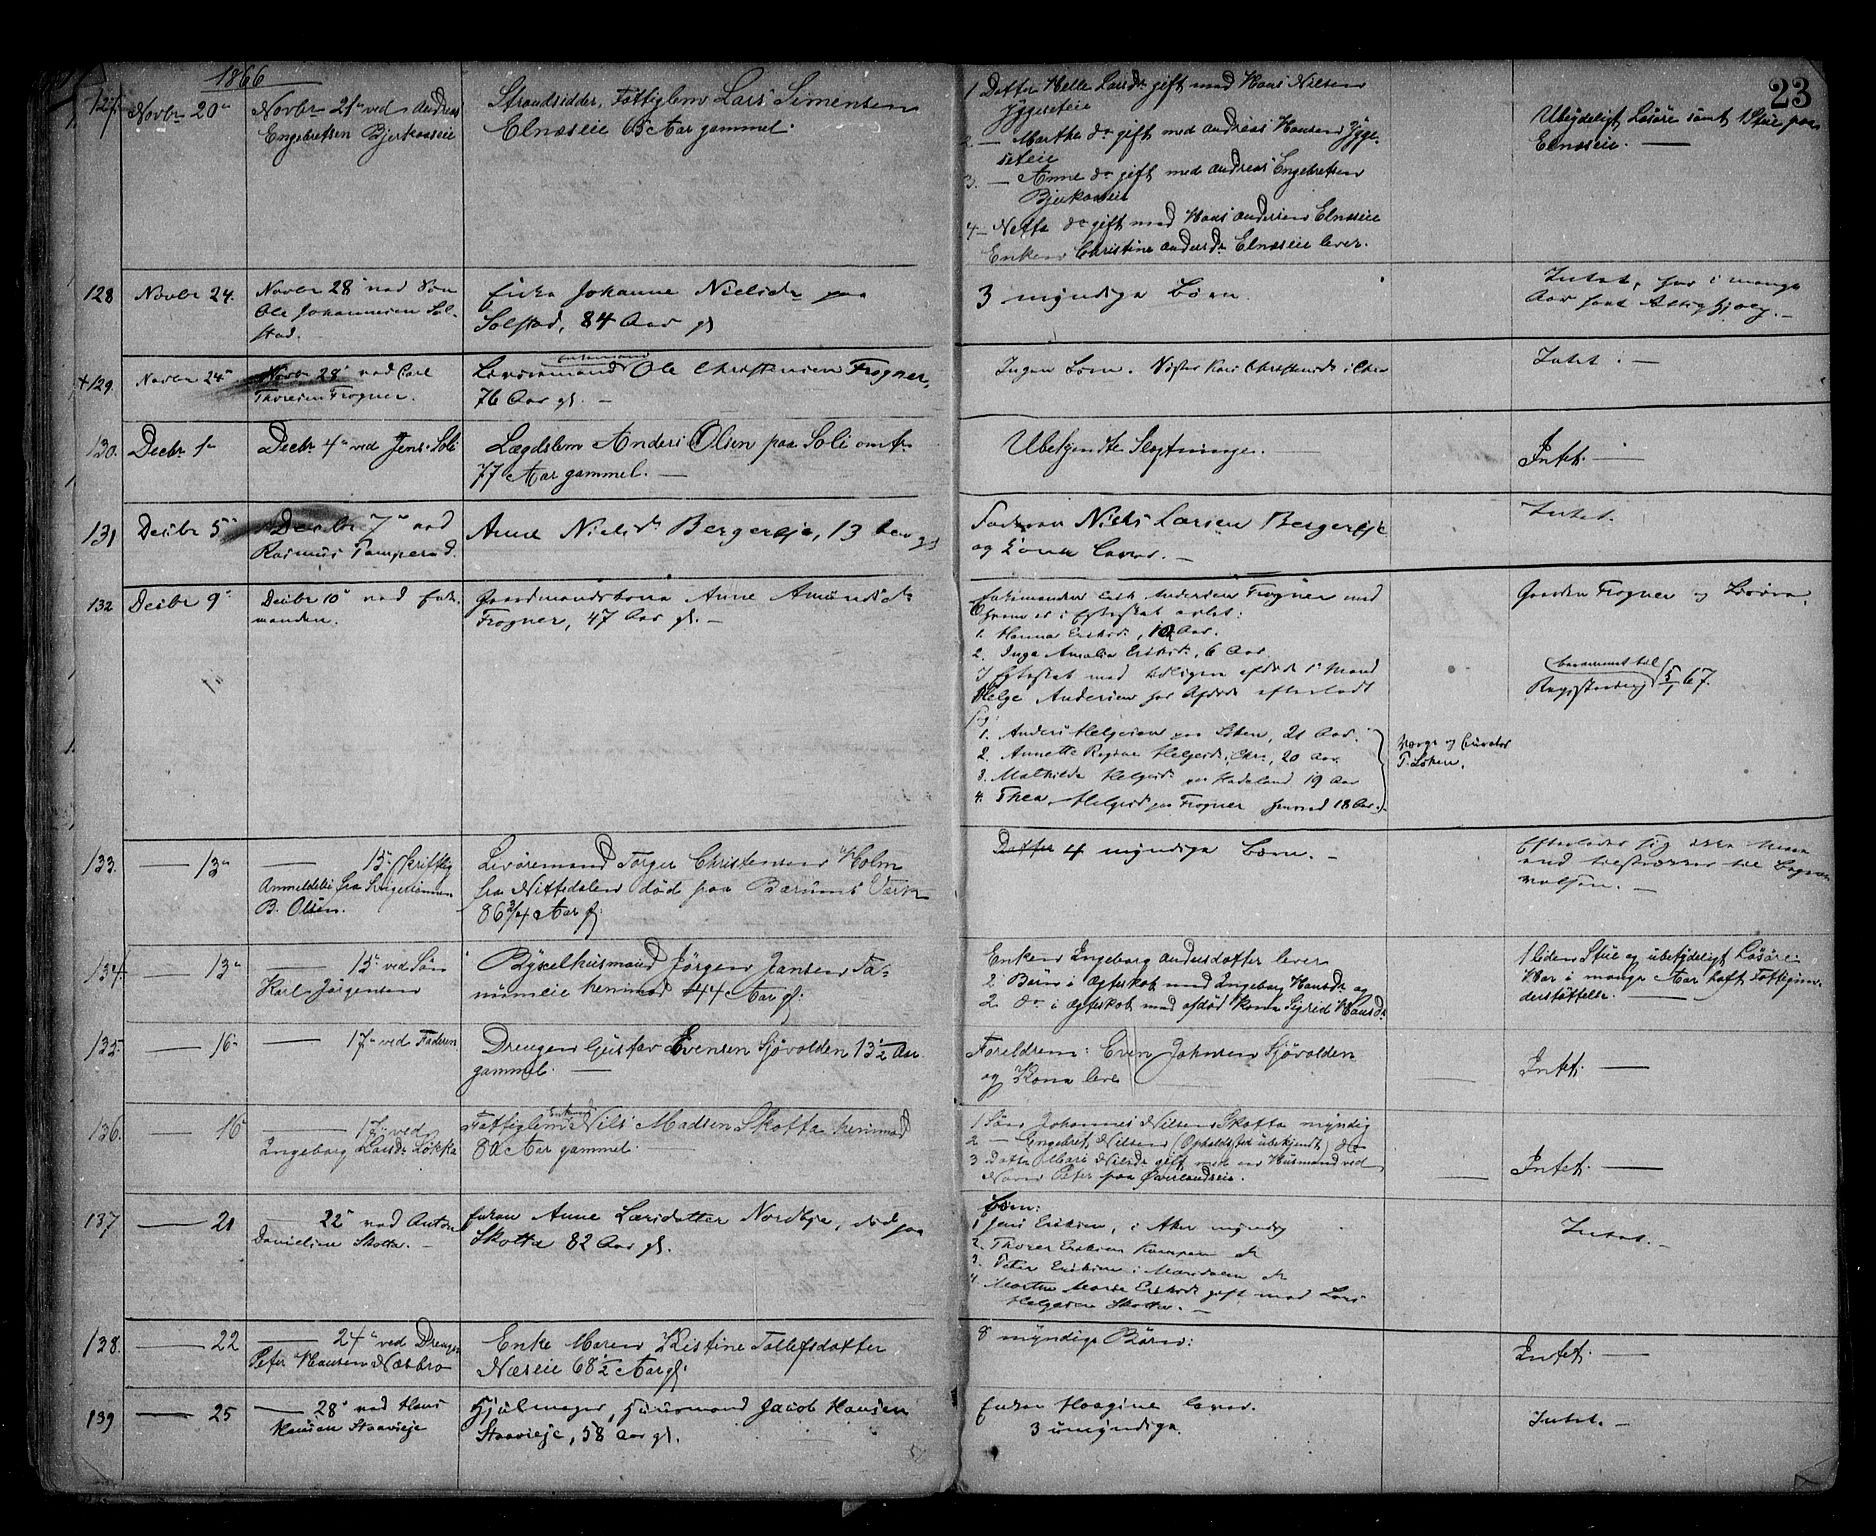 1866
23
127. Novbr 20de
Novbr 21de ved Andreas
Engebretsen Bjerkaaseie
Strandsidder, Fattiglem Lars Simensen
Elnæseie 65 Aar gammel.
1 Datter Helle Larsdr gift med Hans Nilsen
Jyggeseteie
2. — Marthe do gift med Andreas Hansen Jygge-
seteie
3. — Anne do gift med Andreas Engebretsen
Bjerkaaseie
4 — Netta do gift med Hans Andersen Elnæseie
Enken Christine Andersdr Elnæseie lever.
Ubetydeligt Løsøre samt 1 Stue paa
Elnæseie. —
128 Novbr 24.
Novbr 28de ved Søn
Ole Johannesen Sol-
stad.
Enke Johanne Nielsdr paa
Solstad, 84 Aar gl
3 myndige Børn.
Intet, har i mange
Aar havt Fattighjælp. —
+129. Novbr 24de
Novbr 28de ved Carl
Thoresen Frogner.
Enkemand
Levøremand Ole Christensen Frogner,
76 Aar gl. —
Ingen Børn. Søster Kari Christensdr i Chra
Intet. —
130. Decbr 1ste
Decbr 4de ved Jens Soli
Lægdslem Anders Olsen paa Soli omtr.
77 Aar gammel. —
Ubekjendte Slægtninge. —
Intet. —
131 Decbr 5te
Decbr 7de ved
Rasmus Tamperud.
Anne Nielsdr Bergereje, 13 Aar gl
Faderen Niels Larsen Bergereje
og Kone lever. —
Intet.
132 Decbr 9de
Decbr 10de ved Enke-
manden.
Gaardmandskone Anne Amundsdr
Frogner, 47 Aar gl. —
Enkemanden Erik Andersen Frogner med
hvem er i Egteskab avlet:
1. Hanna Eriksdr, 10 Aar.
2. Inga Amalia Eriksdr, 6 Aar.
I Egteskab med tidligere afdøde 1ste Mand
Helge Andersen har Afdøde efterladt
sig:
1. Anders Helgesen paa Løken, 21 Aar.
2. Annette Regine Helgesdr i Chra, 20 Aar
3. Mathilde Helgesdr paa Hadeland 19 Aar
4. Thea Helgesdr paa Frogner henved 18 Aar. —
Værge og Curator
T. Løken.
Gaarden Frogner og Løsøre.
berammet til
Registrering 5/1 67.
133. — 13de
— 15de skriftlig
Anmeldelse fra
B. Olsen.
Levøremand Torger Christensen Holm
fra Nittedalen død paa Bærums Værk
86 3/4 Aar gl.
Datter 4 myndige Børn. —
Efterlader sig ikke mere
end tilstrækker til Begra-
velsen. —
134 — 13de
— 15de ved Søn
Karl Jørgensen
Bygselhusmand Jørgen Jansen Ta-
numeie henimod 44 Aar gl.
Enken Ingeborg Andersdatter lever
2 Børn i Ægteskab med Ingeborg Hansdr og
2 do i Ægteskab med afdød Kone Sigrid Hansdr
1 liden Stue og ubetydeligt Løsøre.
Har i mange Aar havt Fattigun-
derstøttelse. —
135. — 16de
— 17de ved Faderen
Drengen Gustav Evensen Sjøvolden 13½ Aar
gammel. —
Foreldrene: Even Johnsen Sjøvolden
og Kone lever
Intet. —
136. — 16
— 17de ved
Ingeborg Larsdr Løkka
Enkem.
Fattiglem Nils Madsen Skotta henimod
80 Aar gammel. —
1 Søn Johannes Nilsen Skotta myndig
2 — Engebret Nilsen (Opholdssted ubekjendt) do
3 Datter Mari Nilsdr gift med en Husmand ved
Navn Peter paa Øverlandseie.
Intet. —
137 — 21
— 22de ved Anton
Danielsen Skotta. —
Enken Anne Larsdatter Nordbye, død paa
Skotta 82 Aar gl.
Børn:
1 Jens Eriksen, i Aker myndig
2. Thorer Eriksen Kampen do
3. Peter Eriksen i Mæridalen do
4. Marthe Marie Eriksdr gift med Lars
Helgesen Skotta. —
Intet. —
138. — 22
— 24de ved Drengen
Peter Hansen Næsbro
Enke Maren Kristine Tollefsdatter
Næseie 68½ Aar gl.
8 myndige Børn.
Intet. —
139 — 25
— 28de ved Hans
Hansen Staavieje
Hjulmager, Huusmand Jacob Hansen
Staavieje, 58 Aar gl.
Enken Haagine lever.
3 umyndige.
Intet. —